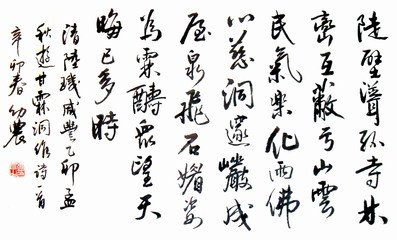 陡壁寺林
巒互蔽亏山雲
民氣樂化雨佛
心慈洞邃巖成
屋泉飛石媚姿
為霖酬眾望天
晦已多時
清陸璣咸豐乙卯孟
秋遊甘霖洞作詩一首
辛卯春幼農